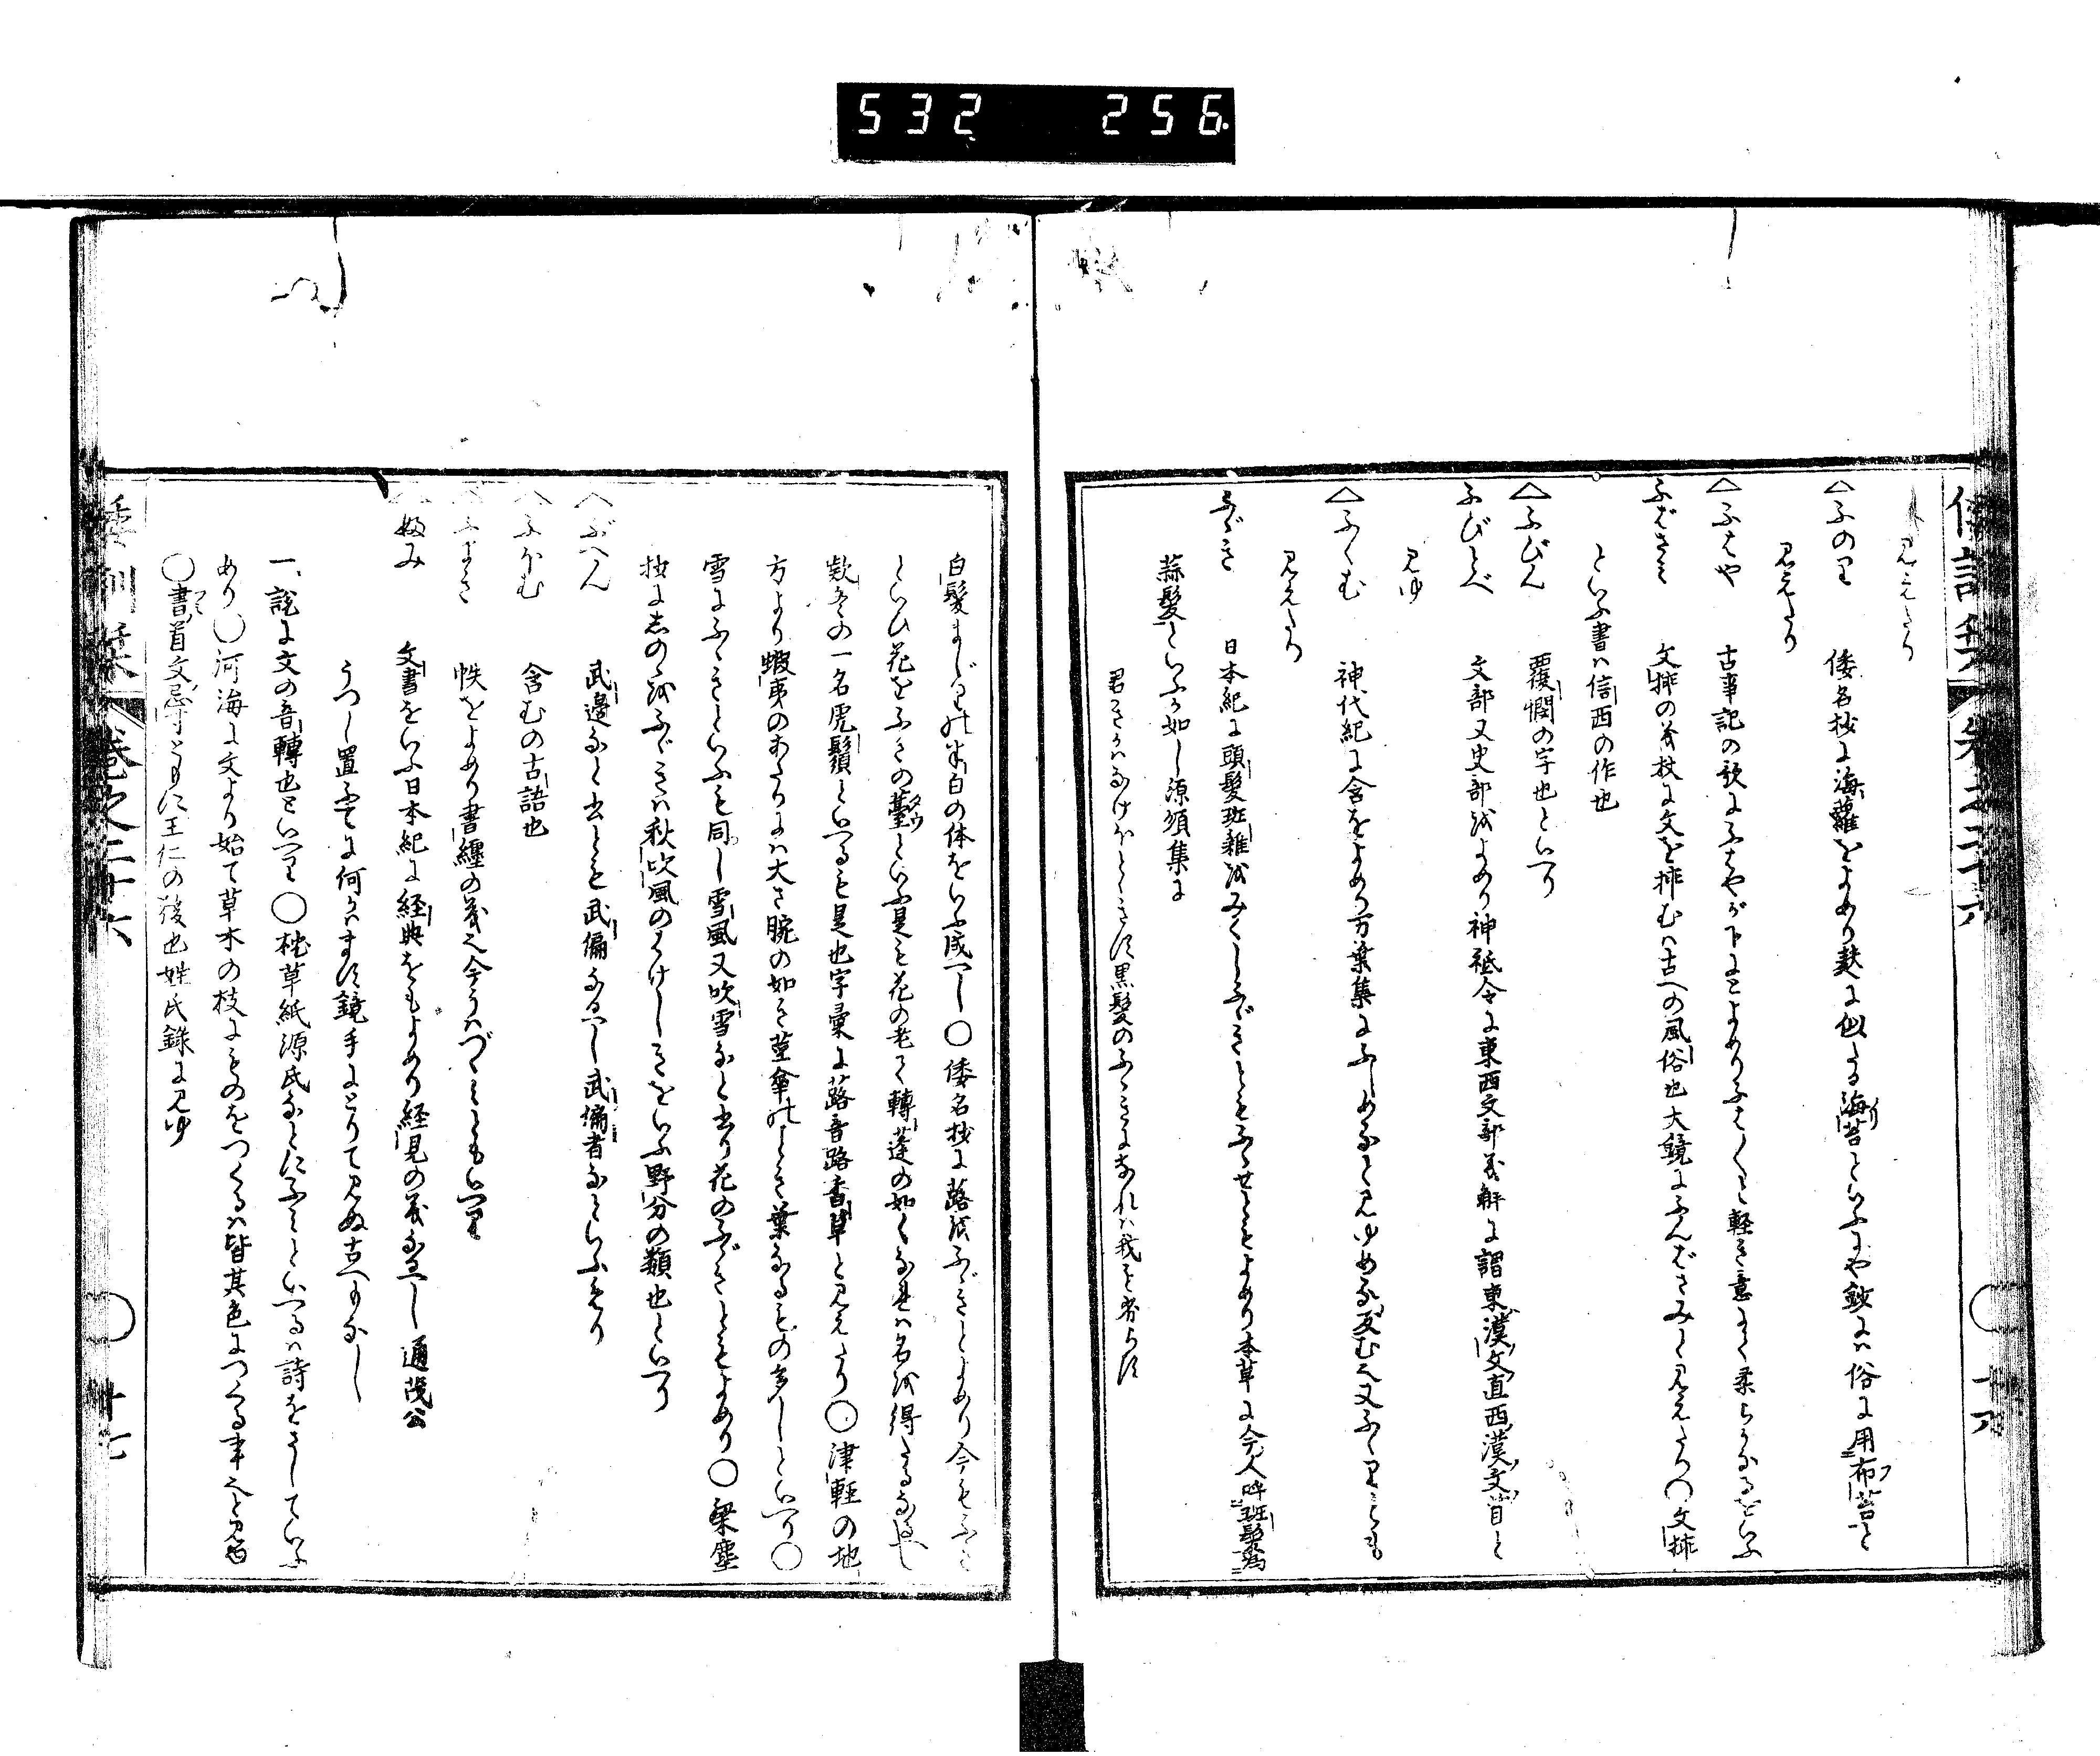 532 256
見えたり
△ふのり 倭名抄に海蘿をよめり麸に似たる海苔といふにや鈔には俗に用布苔と
見えたり
△ふはや 古事記の歌にふはやが下にとよめりふはふはと軽き意にて柔らかなるをいふ
ふばさみ 文挿の義杖に文を挿むは古への風俗也大鏡にふんばさみと見えたり〇文挿
といふ書は信西の作也
△ふびん 覆憫の字也といへり
ふびとべ 文部又史部をよめり神祇令に東西文部義解に謂東漢文直西漢文首と
見ゆ
△ふくむ 神代紀に含をよめり万葉集にふゝめなと見ゆめな反む也又ふくりとも
見えたり
ふゞき 日本紀に頭髪班雑をみぐしふゞきともふゝせともよめり本草に今人呼班髪為
蒜髪といふか如し源順集に
白髪まじりの半白の体をいふ成べし〇倭名抄に蕗をふゞきとよめり今もふき
といひ花をふきの薹といふ是も花の老て轉蓬の如くなれは名を得たるなるべし
欵冬の一名虎鬚といへるも是也字彙に蕗音路香草と見えたり〇津輕の地
方より蝦夷のあたりには大さ腕の如き莖傘のことき葉なるもの多しといへり〇
雪にふゞきといふも同し雪風又吹雪なと書り花のふゞきともよめり〇梁塵
抄に志のゝをふゞきは秋吹風のはけしきをいふ野分の類也といへり
△ぶへん 武邊なと書とも武偏なるべし武偏者なといふめり
△ふほむ 含むの古語也
△ふまき 帙をよめり書纒の義也今うはづゝみともいへり
△ふみ 文書をいふ日本紀に経典をもよめり経見の義なるべし 通茂公
うつし置ふてに何かはます鏡手にとりて見ぬ古へもなし
一説に文の音轉也といへり〇枕草紙源氏なとにふみといへるは詩をさしていふ
あり〇河海に文より始て草木の枝にものをつくるは皆其色につくる事也と見ゆ
〇書首文忌寸ともに王仁の後也姓氏録に見ゆ
倭訓栞 巻之二十六 〇 十七